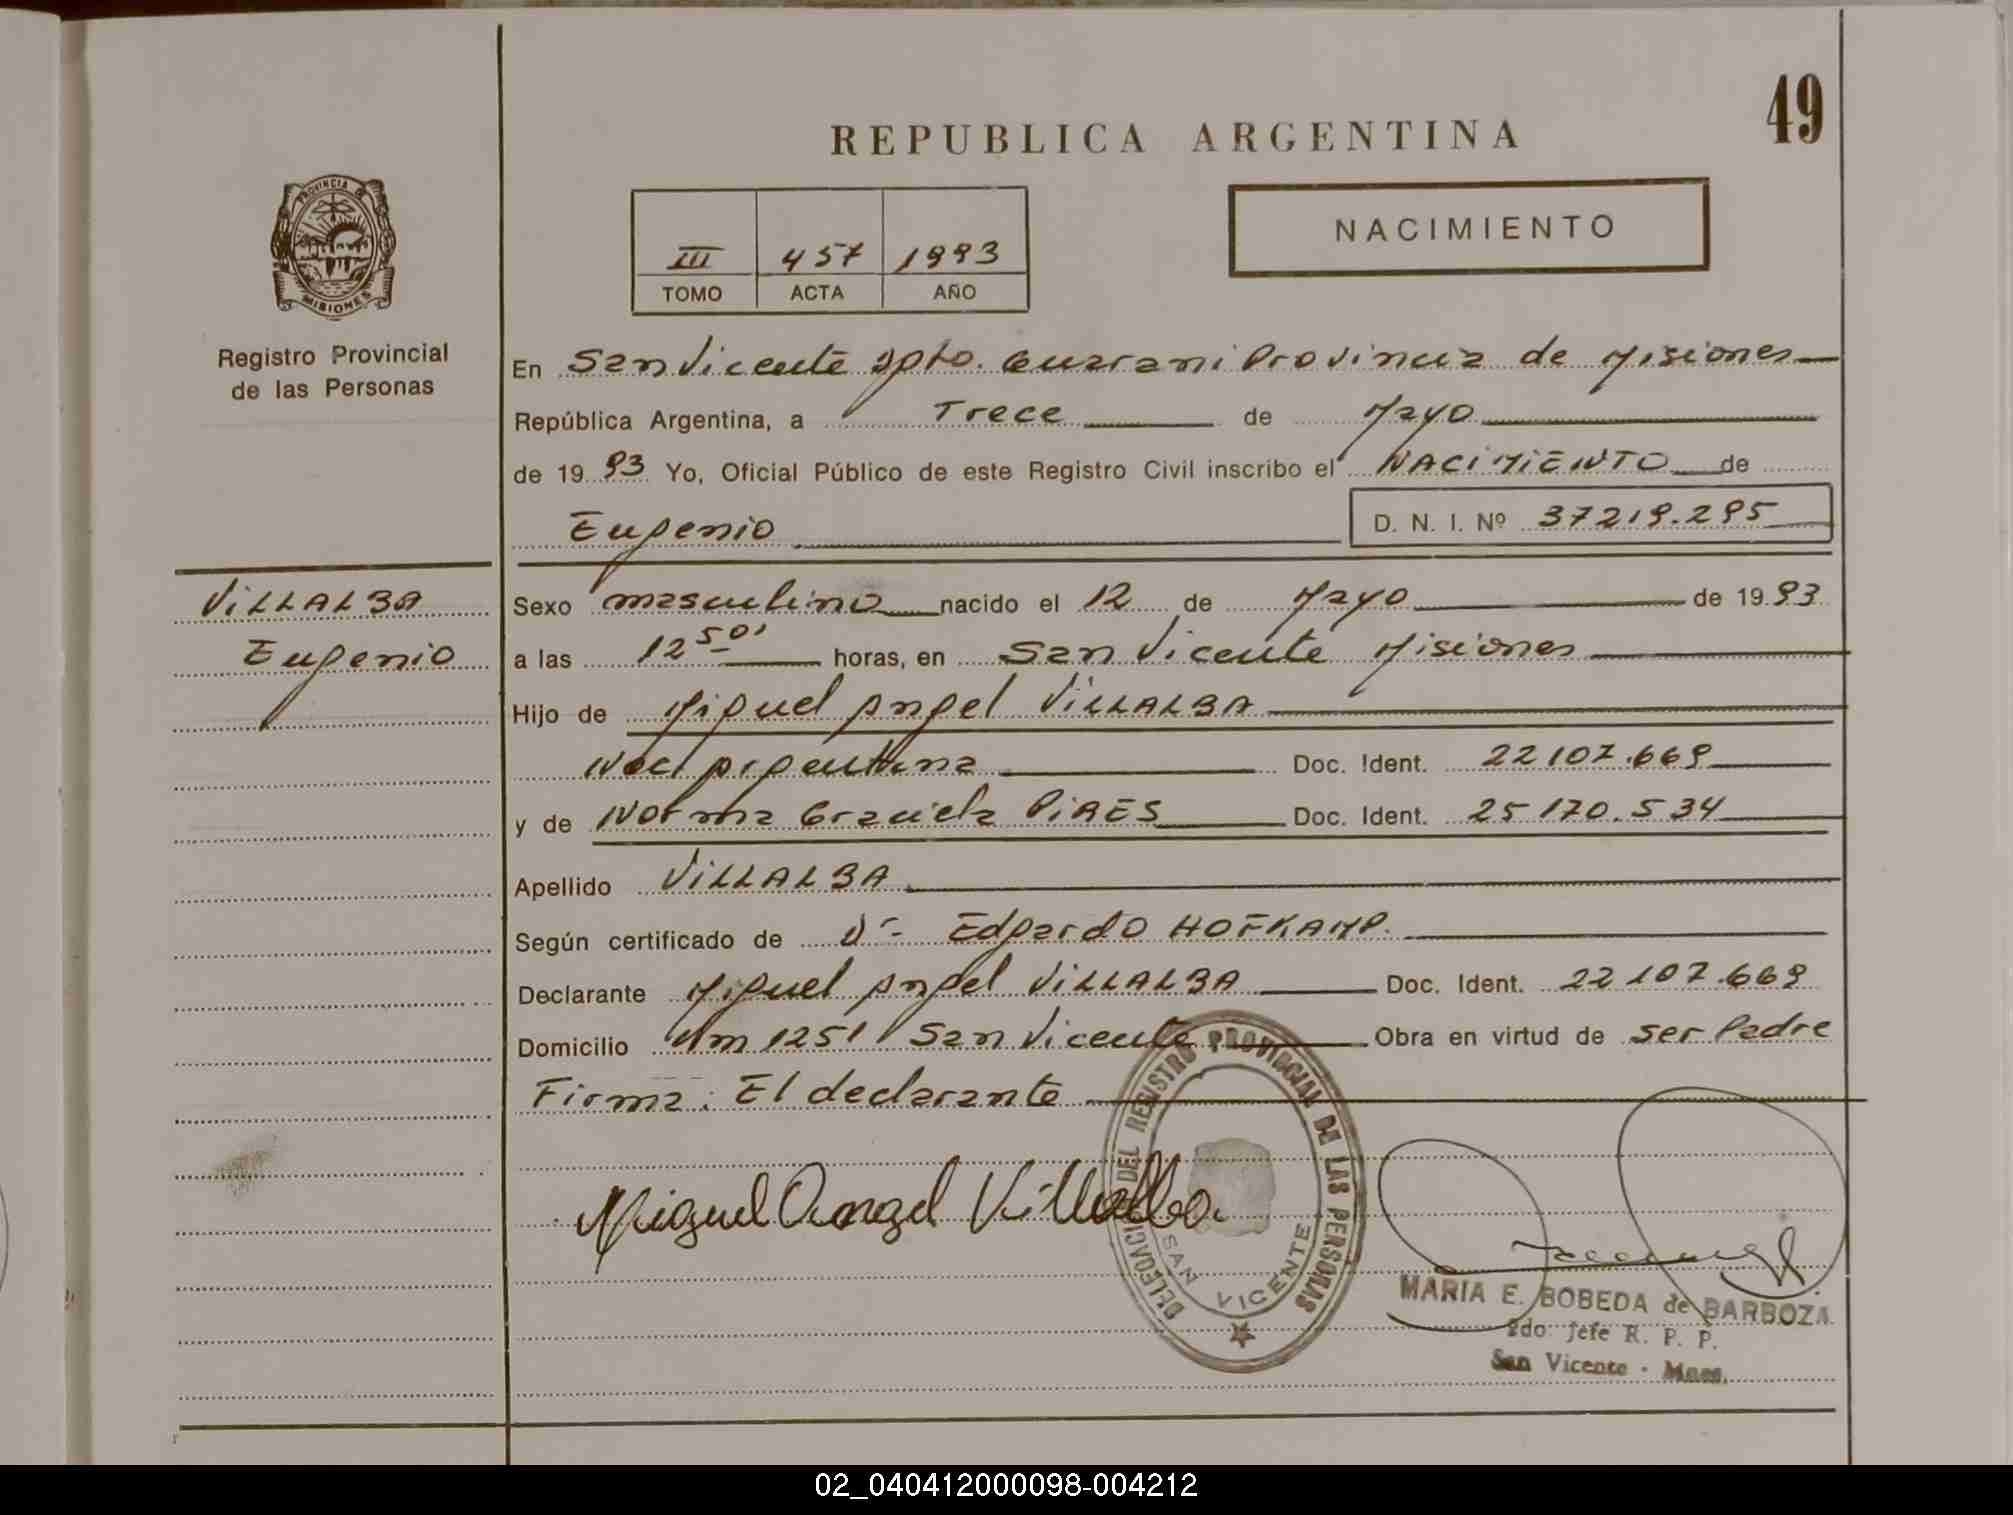 49
REPUBLICA ARGENTINA
PROVINCIA DE
MISIONES
NACIMIENTO
III 457 1993
TOMO ACTA AÑO
Registro Provincial
de las Personas
En San Vicente Dpto. Guarani Provincia de Misiones
República Argentina, a Trece de Mayo
de 19 93 Yo, Oficial Público de este Registro Civil inscribo el NACIMIENTO de
Eugenio D. N. I. Nº 37219.295
VILLALBA
Eugenio
Sexo masculino nacido el 12 de Mayo de 19 93
a las 12 50' horas, en San Vicente Misiones
Hijo de Miguel Angel VILLALBA
Nac. Argentina Doc. Ident. 22107.669
y de Norma Graciela PIRES Doc. Ident. 25170.534
Apellido VILLALBA
Según certificado de Dr. Edgardo HOFKAMP.
Declarante Miguel Angel VILLALBA Doc. Ident. 22107.669
Domicilio Km 1251 San Vicente Obra en virtud de ser Padre
Firma: El declarante
Miguel Angel Villalba
DELEGACION DEL REGISTRO PROVINCIAL DE LAS PERSONAS
SAN VICENTE
MARIA E. BOBEDA de BARBOZA
2do. Jefe R. P. P.
San Vicente - Mnes.
02_040412000098-004212